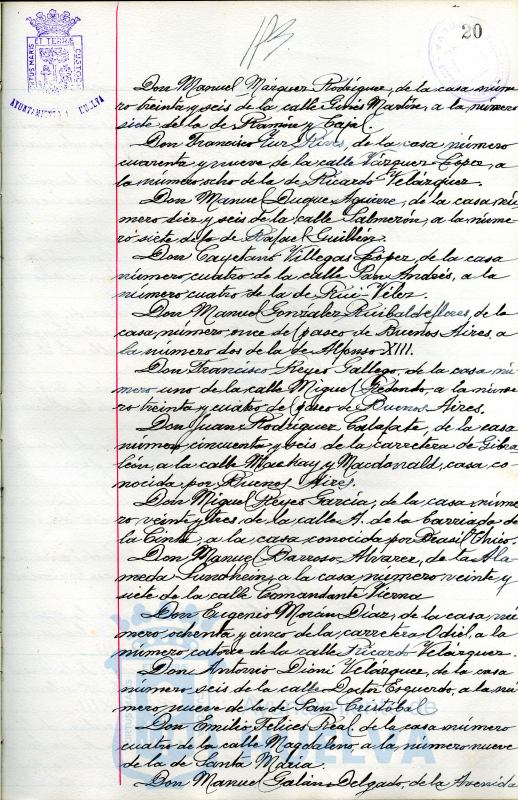 PORTUS MARIS ET TERRAE CUSTODIA
AYUNTAMIENTO HUELVA
20
Don Manuel Márquez Rodríguez, de la casa núme
ro treinta y seis de la calle Ginés Martín, a la número
siete de la de Ramón y Cajal.
Don Francisco de la casa número
cuarenta y nueve de la calle Vázquez López, a
la número ocho de la de Ricardo Velázquez.
Don Manuel Duque Aguirre, de la casa nú
mero diez y seis de la calle Salmerón, a la núme
ro siete de la de Rafael Guillén.
Don Cayetano Villegas López, de la casa
número cuatro de la calle San Andrés, a la
número cuatro de la de Rui-Vélez.
Don Manuel González de la
casa número once del paseo de Buenos Aires, a
la número dos de la de Alfonso XIII.
Don Francisco Reyes Gallego, de la casa nú
mero uno de la calle Miguel Redondo, a la núme
ro treinta y cuatro del paseo de Buenos Aires.
Don Juan Rodríguez Calafate, de la casa
número cincuenta y seis de la carretera de Gibra
león, a la calle Mackay y Macdonald, casa co-
nocida por Buenos Aires.
Don Miguel Reyes García, de la casa núme
ro veinte y tres, de la calle A. de la Barriada de
la Cinta, a la casa conocida por Brasil Chico.
Don Manuel Barroso Alvarez, de la Ala
meda Sundhein, a la casa número veinte y
siete de la calle Comandante Vierna
Don Eugenio Morán Díaz, de la casa nú
mero ochenta y cinco de la carretera Odiel, a la
número catorce de la calle Ricardo Velázquez.
Don Antonio Dioni Velázquez, de la casa
número seis de la calle Doctor Esquerdo, a la nú
mero nueve de la de San Cristóbal.
Don Emilio Felices Real, de la casa número
cuatro de la calle Magdalena, a la número nueve
de la de Santa María.
Don Manuel Galán Delgado, de la Avenida
HUELVA